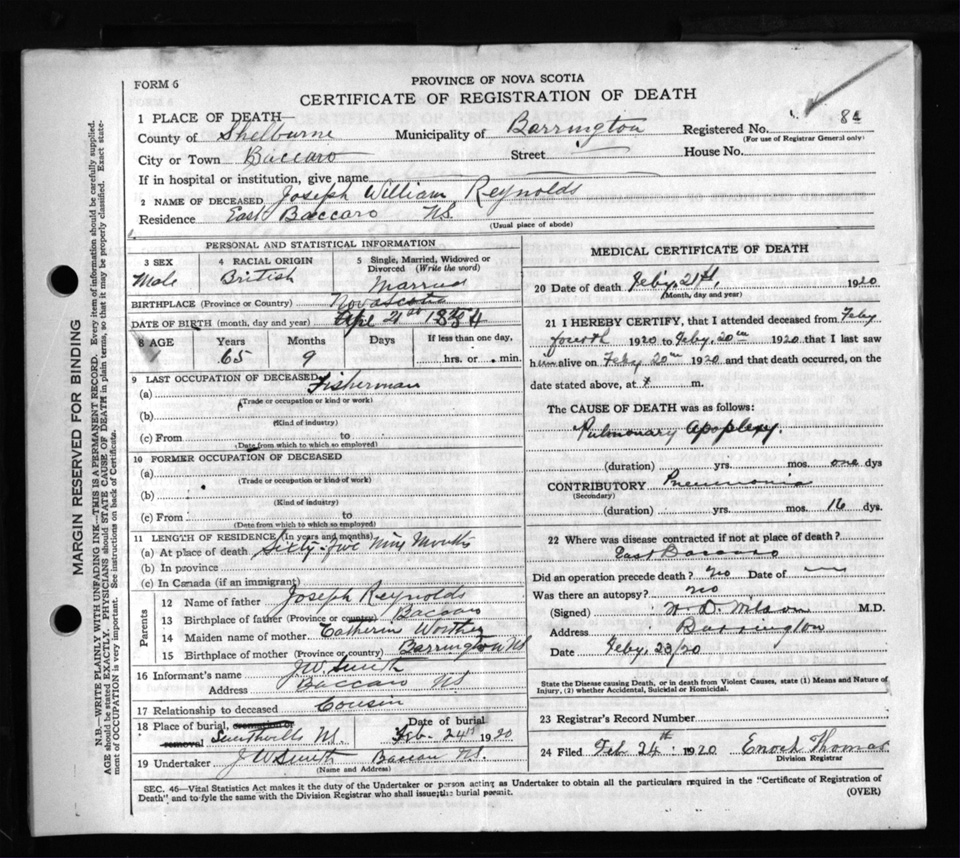 FORM 6
PROVINCE OF NOVA SCOTIA
CERTIFICATE OF REGISTRATION OF DEATH
1 PLACE OF DEATH—
County of Shelburne Municipality of Barrington Registered No. 84
(For use of Registrar General only)
City or Town Baccaro Street House No.
If in hospital or institution, give name
2 NAME OF DECEASED Joseph William Reynolds
Residence East Baccaro NS.
(Usual place of abode)
PERSONAL AND STATISTICAL INFORMATION
3 SEX 4 RACIAL ORIGIN 5 Single, Married, Widowed or Divorced (Write the word)
Male British Married
BIRTHPLACE (Province or Country) Nova Scotia
DATE OF BIRTH (month, day and year) Apl 21st 1854
8 AGE Years Months Days If less than one day,
65 9 hrs. or min.
9 LAST OCCUPATION OF DECEASED
(a) Fisherman
(Trade or occupation or kind or work)
(b)
(Kind of industry)
(c) From to
(Date from which to which so employed)
10 FORMER OCCUPATION OF DECEASED
(a)
(Trade or occupation or kind of work)
(b)
(Kind of industry)
(c) From to
(Date from which to which so employed)
11 LENGTH OF RESIDENCE (In years and months)
(a) At place of death Sixty-five Nine Months
(b) In province
(c) In Canada (if an immigrant)
Parents
12 Name of father Joseph Reynolds
13 Birthplace of father (Province or country) Baccaro
14 Maiden name of mother Catherin
15 Birthplace of mother (Province or country) Barrington NS
16 Informant's name J.W. Smith
Address Baccaro NS
17 Relationship to deceased Cousin
18 Place of burial, cremation or removal Smithville NS. Date of burial Feb. 24th 1920
19 Undertaker J W Smith Baccaro NS.
(Name and Address)
MEDICAL CERTIFICATE OF DEATH
20 Date of death Feby. 21st, 1920
(Month, day and year)
21 I HEREBY CERTIFY, that I attended deceased from Feby
fourth 1920 to Feby. 20th 1920 that I last saw
him alive on Feby 20th 1920 and that death occurred, on the
date stated above, at m.
The CAUSE OF DEATH was as follows:
Pulmonary Apoplexy.
(duration) yrs. mos. one dys
CONTRIBUTORY Pneumonia
(Secondary)
(duration) yrs. mos. 16 dys.
22 Where was disease contracted if not at place of death?
East Baccaro
Did an operation precede death? no Date of
Was there an autopsy? no
(Signed) H. D. Wilson M.D.
Address Barrington
Date Feby. 23/20
State the Disease causing Death, or in death from Violent Causes, state (1) Means and Nature of
Injury, (2) whether Accidental, Suicidal or Homicidal.
23 Registrar's Record Number
24 Filed Feb 24th 1920 Enoch Thomas
Division Registrar
SEC. 46—Vital Statistics Act makes it the duty of the Undertaker or person acting as Undertaker to obtain all the particulars required in the "Certificate of Registration of
Death" and to fyle the same with the Division Registrar who shall issue the burial permit. (OVER)
MARGIN RESERVED FOR BINDING
N.B.—WRITE PLAINLY WITH UNFADING INK—THIS IS A PERMANENT RECORD. Every item of information should be carefully supplied.
AGE should be stated EXACTLY. PHYSICIANS should STATE CAUSE OF DEATH in plain terms, so that it may be properly classified. Exact statement of OCCUPATION is very important. See instructions on back of Certificate.